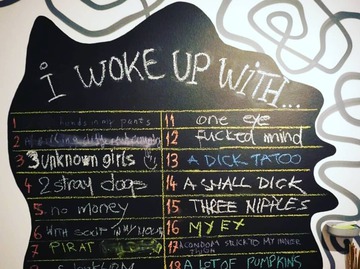 i WOKE UP WiTH...
1 hands in my pants
2
3 3 unknown girls
4 2 stray dogs
5. no money
6 WITH SCXIT IN MY
7 PIRAT
11 one eye
12 fucked mind
13 A DICK TATOO
14 A SMALL DICK
15 THREE NIPPLES
16 MY EX
17 A CONDOM STUCK TO MY INNER
18 A LOT OF PUMPKINS